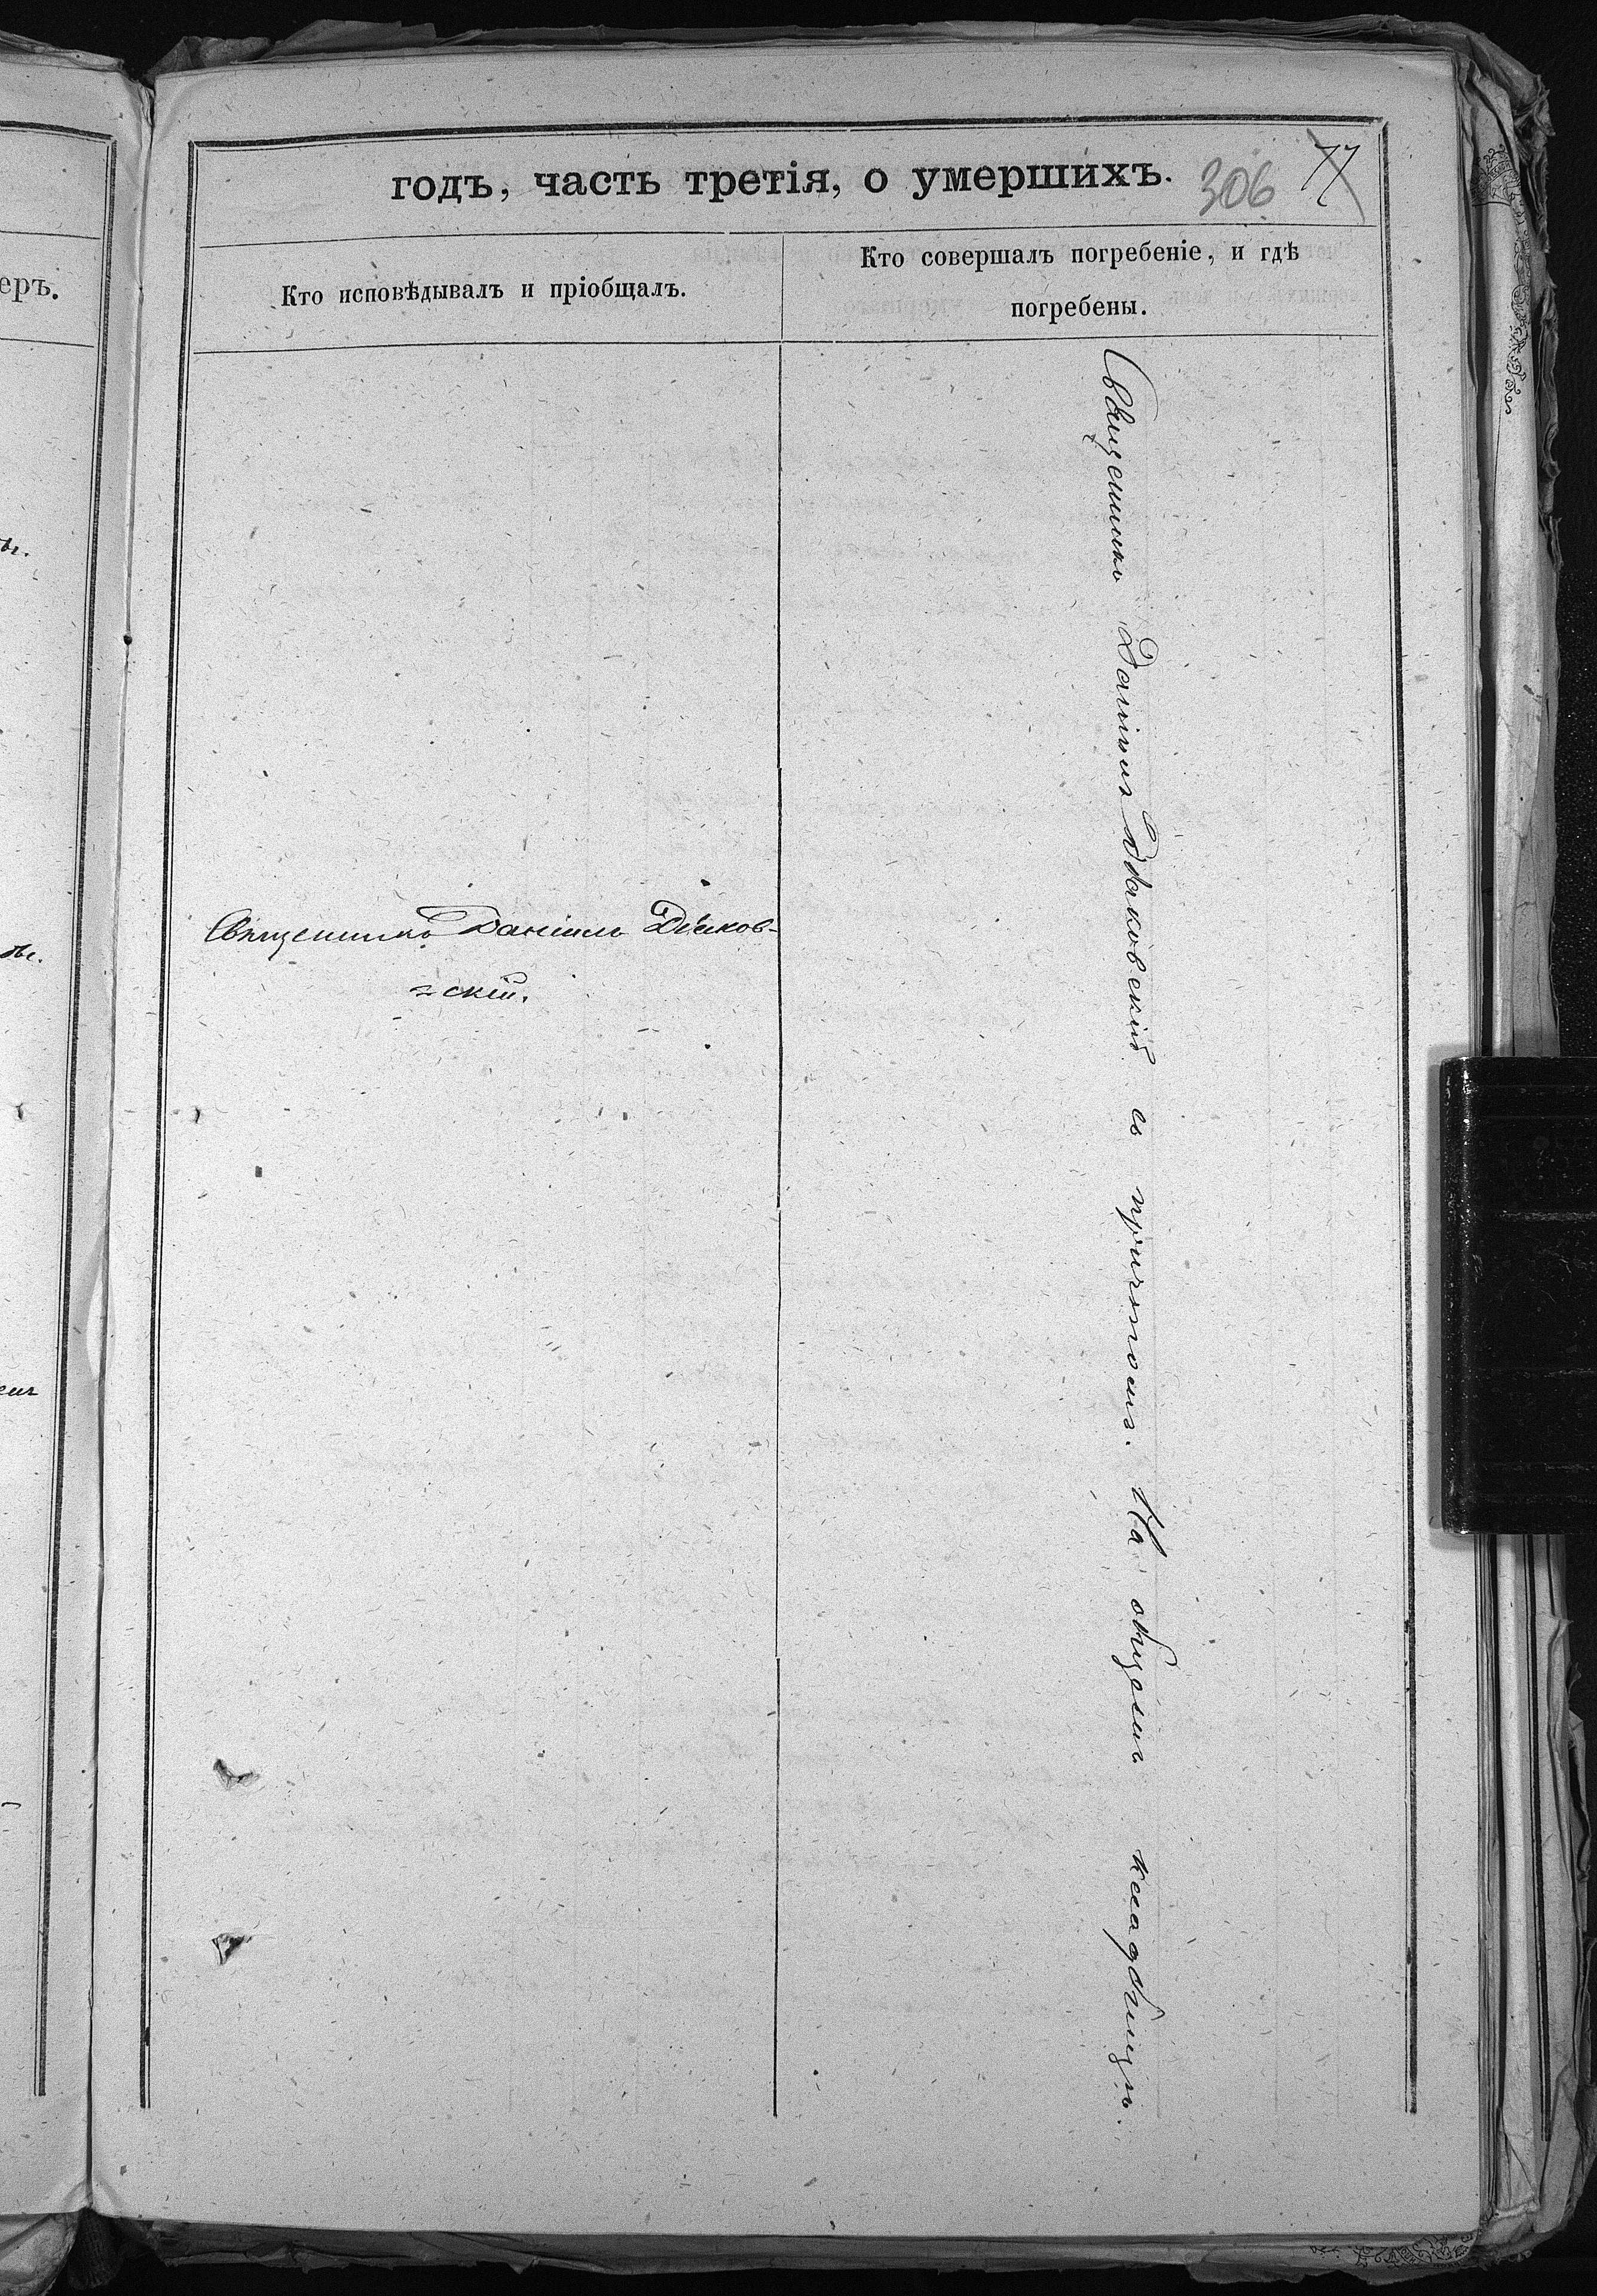 еръ.
годъ, часть третія, о умершихъ.
306 77
Кто исповѣдывалъ и пріобщалъ.
Кто совершалъ погребеніе, и гдѣ
погребены.
Священникъ Даніилъ Дьяков-
=скій.
Священникъ Даніилъ Дьяковскій съ причтомъ. На общемъ кладбищѣ.